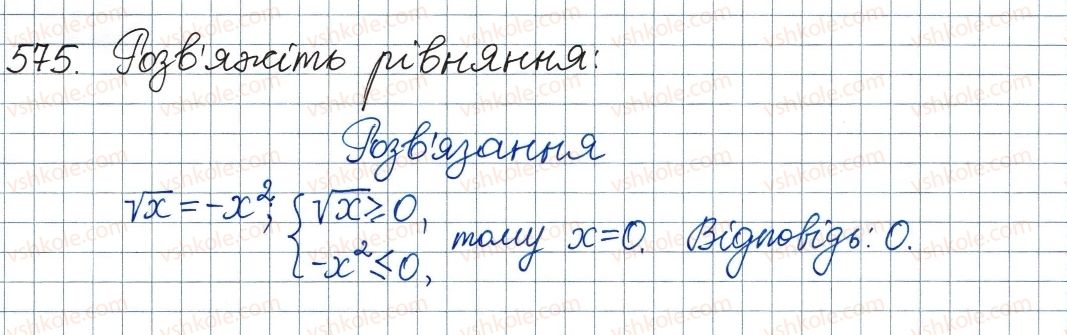 575. Розв'яжіть рівняння:
Розв'язання
√x = -x²; { √x ≥ 0, -x² ≤ 0, тому x = 0. Відповідь: 0.